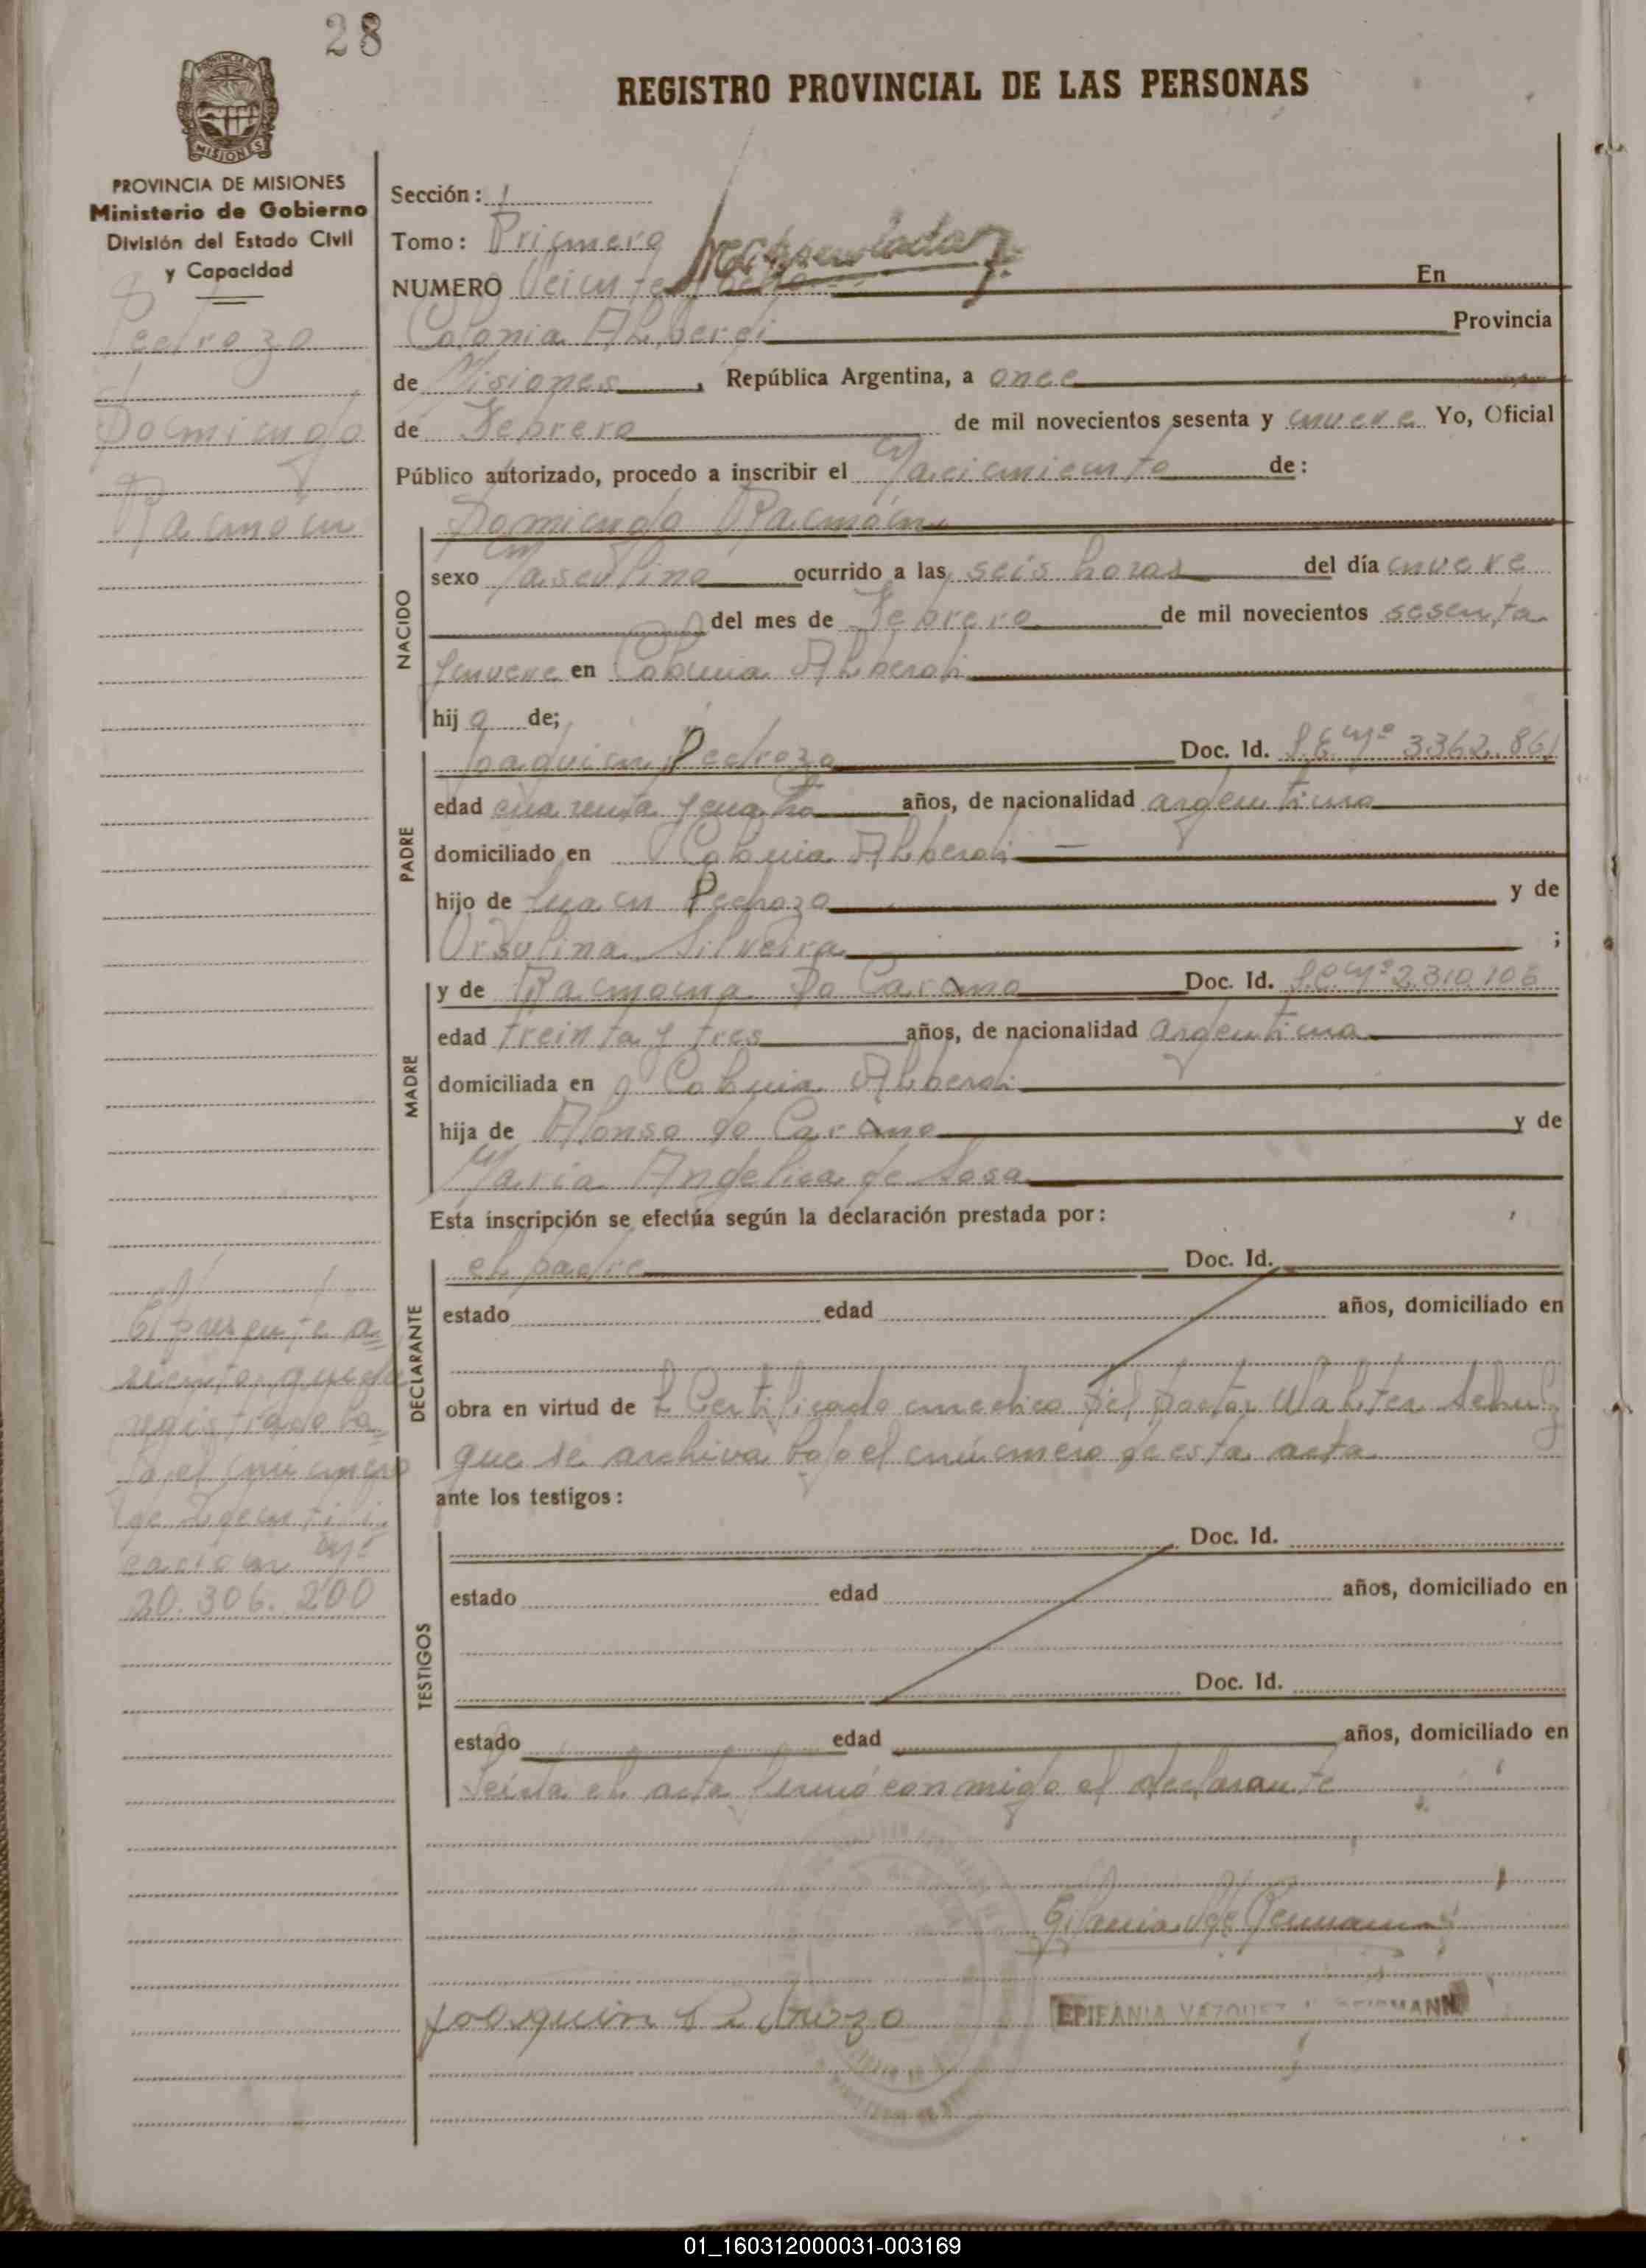 28
REGISTRO PROVINCIAL DE LAS PERSONAS
PROVINCIA DE
MISIONES
PROVINCIA DE MISIONES
Ministerio de Gobierno
División del Estado Civil
y Capacidad
Pedrozo
Domingo
Ramón
Sección: 1
Tomo: Primero
NUMERO Veinte En
Colonia Alberdi Provincia
de Misiones, República Argentina, a once
de Febrero de mil novecientos sesenta y nueve Yo, Oficial
Público autorizado, procedo a inscribir el Nacimiento de:
NACIDO
Domingo Ramón
sexo Masculino ocurrido a las seis horas del día nueve
del mes de Febrero de mil novecientos sesenta
y nueve en Colonia Alberdi
hij o de;
PADRE
Joaquin Pedrozo Doc. Id. L.E. Nº 3362.861
edad cuarenta y cuatro años, de nacionalidad argentino
domiciliado en Colonia Alberdi
hijo de Juan Pedrozo y de
Ursulina Silveira ;
MADRE
y de Ramona Do Carmo Doc. Id. L.C. Nº 2.310.106
edad treinta y tres años, de nacionalidad argentina
domiciliada en Colonia Alberdi
hija de Alonso do Carmo y de
Maria Angelica de Sosa
Esta inscripción se efectúa según la declaración prestada por:
DECLARANTE
el padre Doc. Id.
estado edad años, domiciliado en
obra en virtud de l Certificado medico del Doctor Walter Schulz
que se archiva bajo el número de esta acta
ante los testigos:
TESTIGOS
Doc. Id.
estado edad años, domiciliado en
Doc. Id.
estado edad años, domiciliado en
Leida el acta firmó conmigo el declarante
El presente na
cimiento queda
registrado ba
jo el número
de Identifi
cación Nº
20.306.200
Joaquin Pedrozo
EPIFANIA VAZQUEZ
01_160312000031-003169